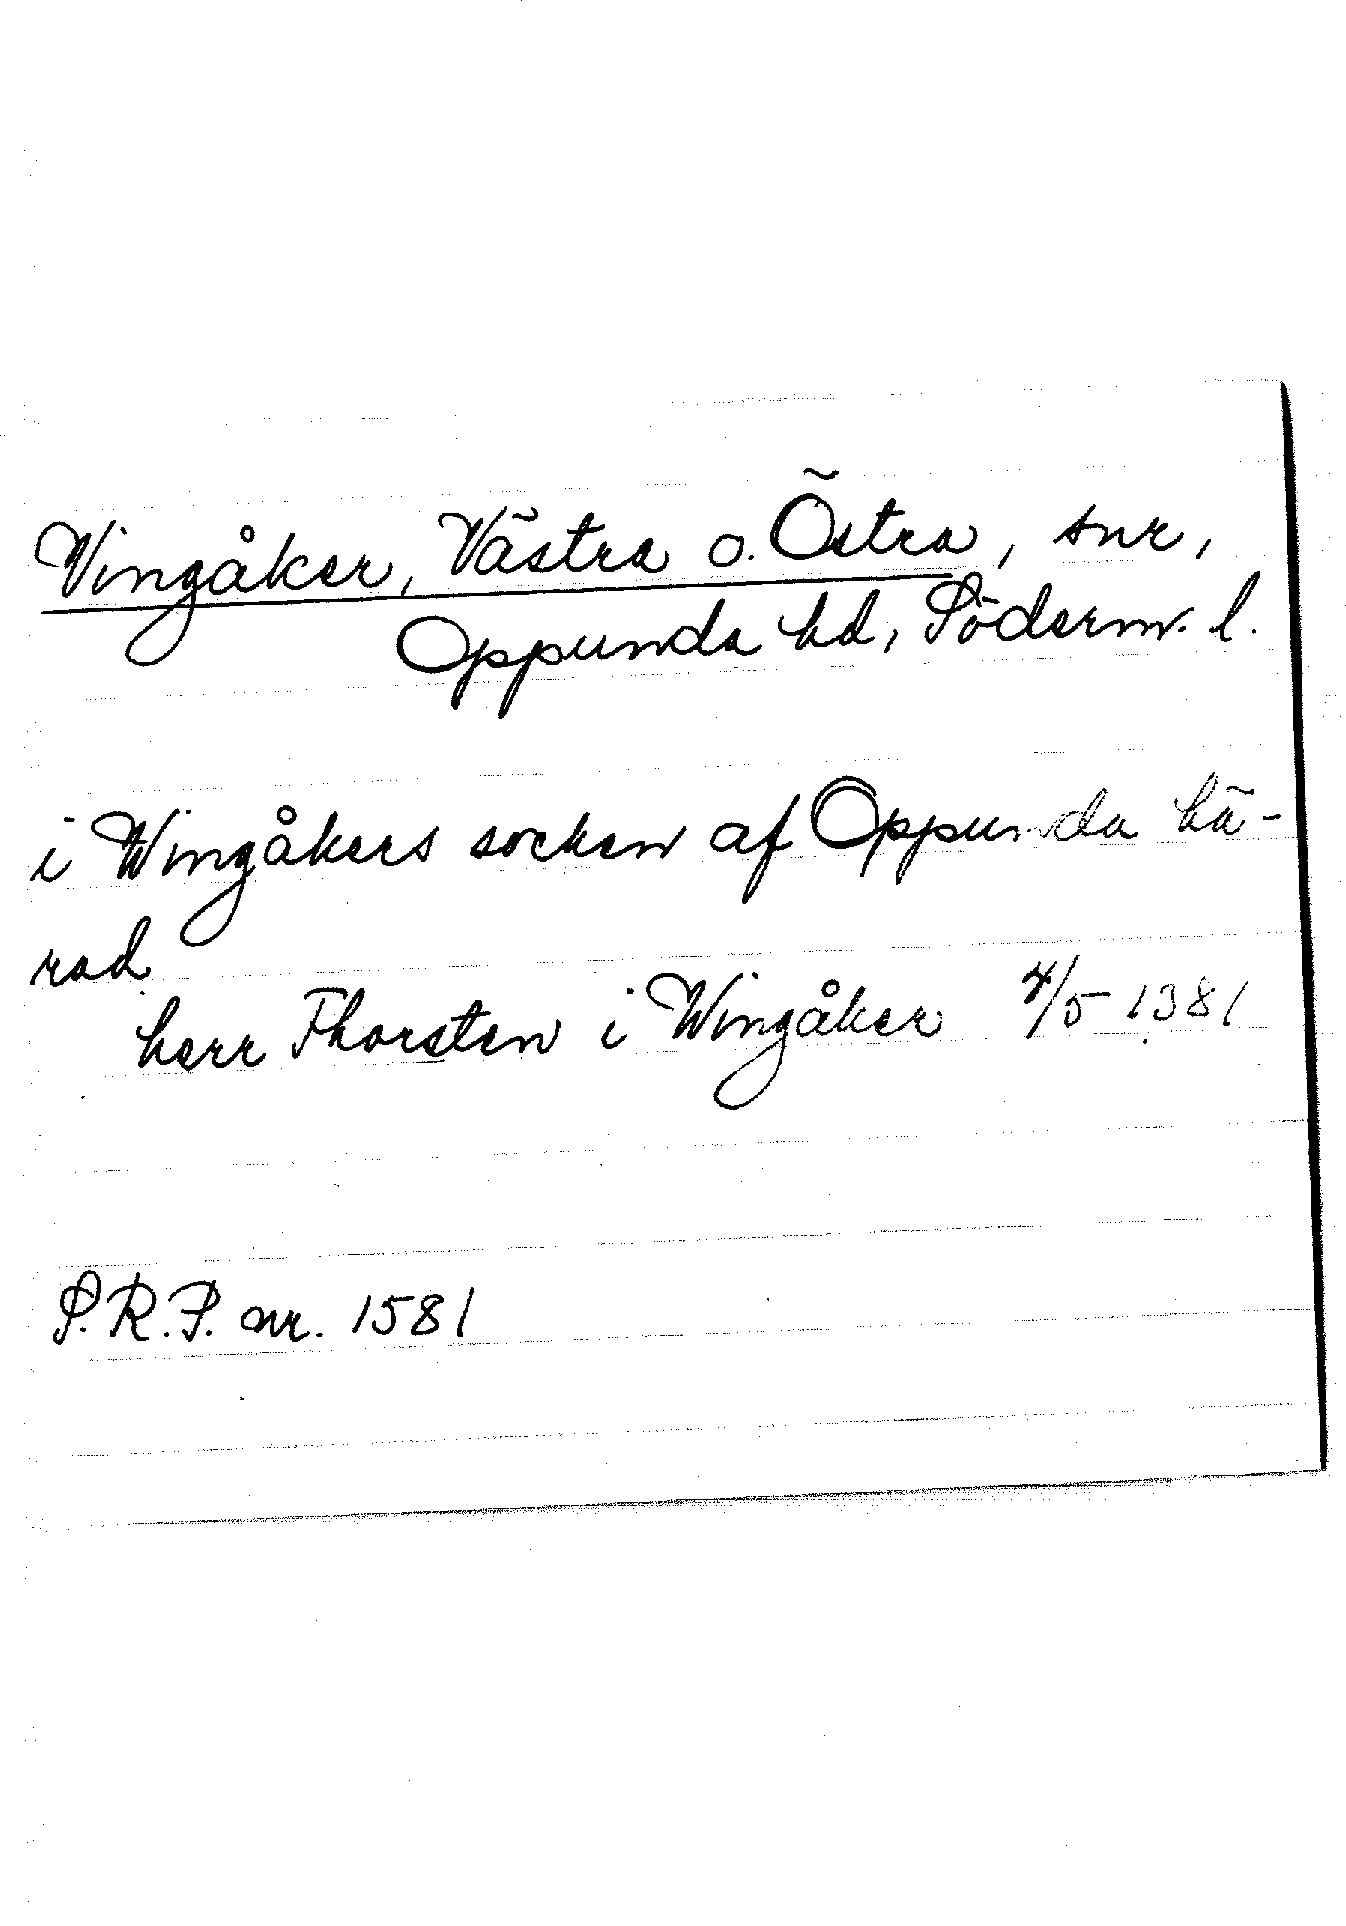 Vingåker, Västra o. Östra, snr,
Oppunda hd, Söderm. l.
i Wingåkers socken af Oppunda hä-
rad
herr Thorsten i Wingåker 4/5 1381
S.R.P. nr. 1581